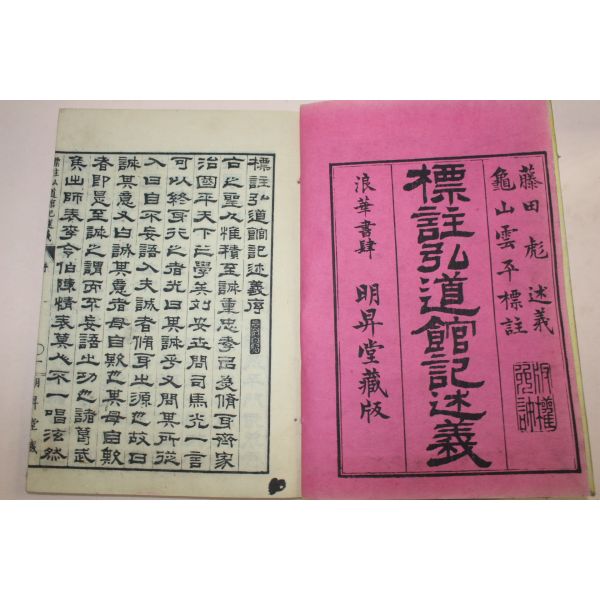 藤田彪述義
龜山雲平標註
標註弘道館記述義
浪華書肆 明昇堂藏版
標註弘道館記述義序
古之聖人惟積至誠重忠孝品及脩身齊家
治國平天下之學矣劉安世問司馬光一言
可以終身行之者光曰其誠乎又問其所從
入曰自不妄語入夫誠者脩身之源也故曰
誠其意又曰誠其意者毋自欺也其毋自欺
者即是至誠之謂而不妄語之功也諸葛武
矦出師表李令伯陳情表莫人不一唱泫然
標註弘道館記述義 序 一 明昇堂藏